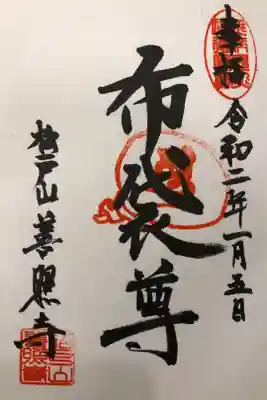 奉拝
令和二年一月五日
布袋尊
松戸山善照寺